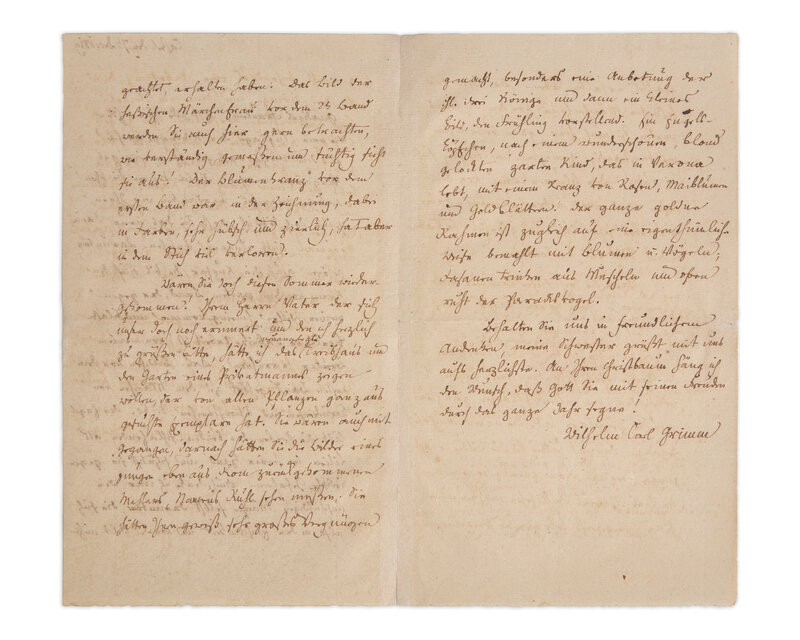 geachtet, erhalten haben. Das Bild der
heßischen Märchenfrau vor dem 2ten Band
werden Sie auch hier gern betrachten,
wie verständig gemeßen und tüchtig sieht
sie aus! Der Blumenkranz vor dem
ersten Band war in der Zeichnung, dabei
in Farben, sehr hübsch und zierlich, hat aber
in dem Stich viel verloren.
Wären Sie doch diesen Sommer wieder-
gekommen! Ihrem Herrn Vater der sich
unser doch noch erinnert und den ich herzlich
zu grüßen bitte, hätte ich das Treibhaus und
den Garten eines Privatmannes zeigen
wollen, der von allen Pflanzen ganz aus
gesuchte Exemplare hat. Sie wären auch mit
gegangen, darnach hätten Sie die Bilder eines
jungen eben aus Rom zurückgekommenen
Mahlers, Namens Ruhl sehen müßen. Sie
hätten Ihnen gewiß sehr großes Vergnügen
gemacht, besonders eine Anbetung der
hl. drei Könige und dann ein kleines
Bild, den Frühling vorstellend. Ein Engels-
köpfchen, nach einem wunderschönen, blond
gelockten zarten Kind, das in Verona
lebt, mit einem Kranz von Rosen, Maiblumen
und Goldblättern. Der ganze goldne
Rahmen ist zugleich auf eine eigenthümliche
Weise bemahlt mit Blumen u. Vögeln;
Fasanen trinken aus Muscheln und oben
ruht der Paradisvogel.
Behalten Sie uns in freundlichem
Andenken meine Schwester grüßt mit uns
aufs herzlichste. An Ihren Christbaum häng ich
den Wunsch, daß Gott Sie mit seinen Freuden
durch das ganze Jahr segne!
Wilhelm Carl Grimm